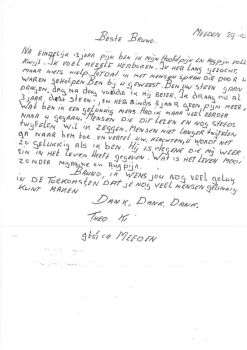 MEEDEN 29-10
BESTE BRUNO.
NA EINDELIJK 12 JAAR PIJN BEN IK MIJN HOOFDPIJN EN RUGPIJN VOLLEDIG
KWIJT. IK VOEL MEZELF HERBOREN. IK HEB LANG GEZOCHT
MAAR NIETS HIELP. TOTDAT IK MET MENSEN SPRAK DIE DOOR U
WAREN GEHOLPEN BEN BIJ U GEWEEST. BEN UW STEEN GAAN
DRAGEN, DAG NA DAG VOELDE IK MIJ BETER. IK DRAAG NU AL
3 JAAR DEZE STEEN, EN HEB SINDS 3 JAAR GEEN PIJN MEER,
WAT BEN IK EEN GELUKKIG MENS. HAD IK MAAR VEEL EERDER
NAAR U GEGAAN. MENSEN DIE DIT LEZEN EN NOG STEEDS
TWIJFELEN WIL IK ZEGGEN, MENSEN NIET LANGER TWIJFELEN
GA NAAR HEM TOE EN VERTEL UW KLACHTEN U WORDT NET
ZO GELUKKIG ALS IK BEN. HIJ IS DEGENE DIE MIJ WEER
ZIN IN HET LEVEN HEEFT GEGEVEN. WAT IS HET LEVEN MOOI
ZONDER MIGRAINE EN RUGPIJN.
BRUNO, IK WENS JOU NOG VEEL GELUK
IN DE TOEKOMST EN DAT JE NOG VEEL MENSEN GELUKKIG
KUNT MAKEN
DANK, DANK, DANK.
THEO
MEEDEN